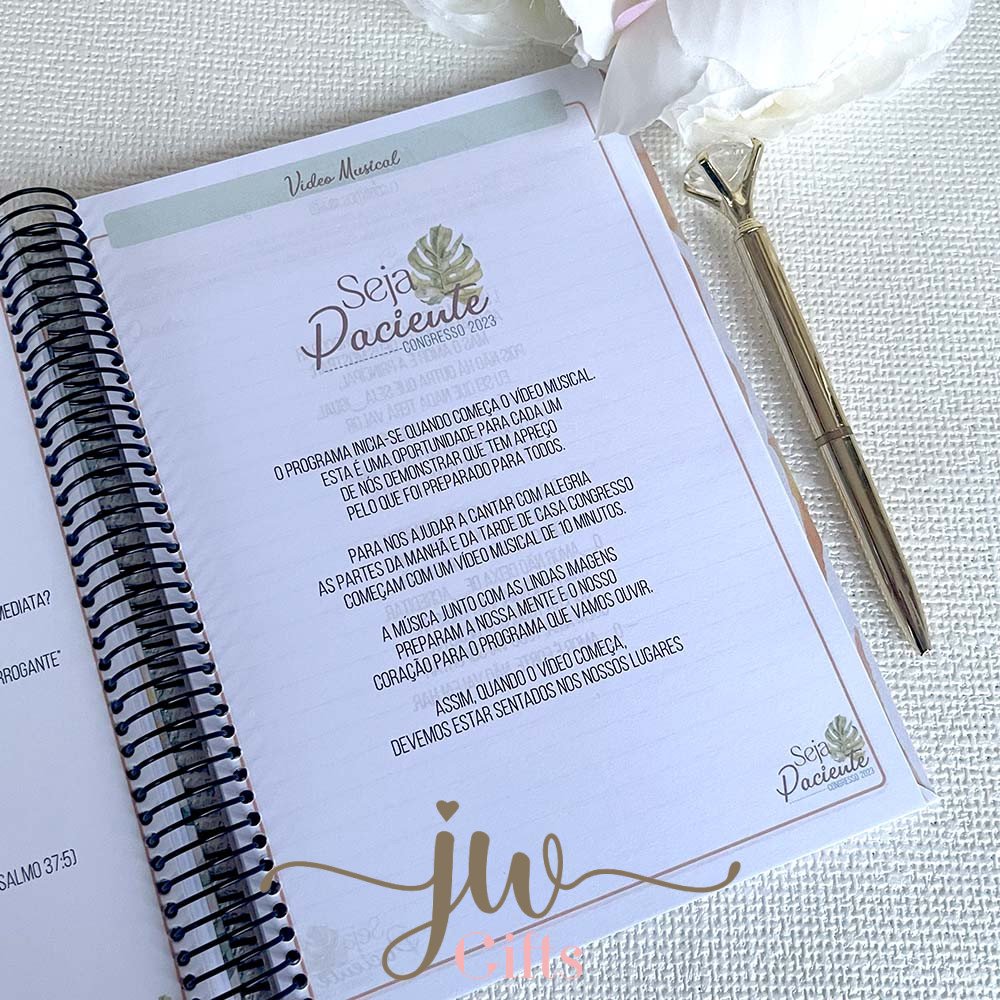 Vídeo Musical
Seja
Paciente
CONGRESSO 2023
O PROGRAMA INICIA-SE QUANDO COMEÇA O VÍDEO MUSICAL.
ESTA É UMA OPORTUNIDADE PARA CADA UM
DE NÓS DEMONSTRAR QUE TEM APREÇO
PELO QUE FOI PREPARADO PARA TODOS.
PARA NOS AJUDAR A CANTAR COM ALEGRIA
AS PARTES DA MANHÃ E DA TARDE DE CASA CONGRESSO
COMEÇAM COM UM VÍDEO MUSICAL DE 10 MINUTOS.
A MÚSICA JUNTO COM AS LINDAS IMAGENS
PREPARAM A NOSSA MENTE E O NOSSO
CORAÇÃO PARA O PROGRAMA QUE VAMOS OUVIR.
ASSIM, QUANDO O VÍDEO COMEÇA,
DEVEMOS ESTAR SENTADOS NOS NOSSOS LUGARES
Seja
Paciente
CONGRESSO 2023
MEDIATA?
RROGANTE"
SALMO 37:5)
jw
Gifts